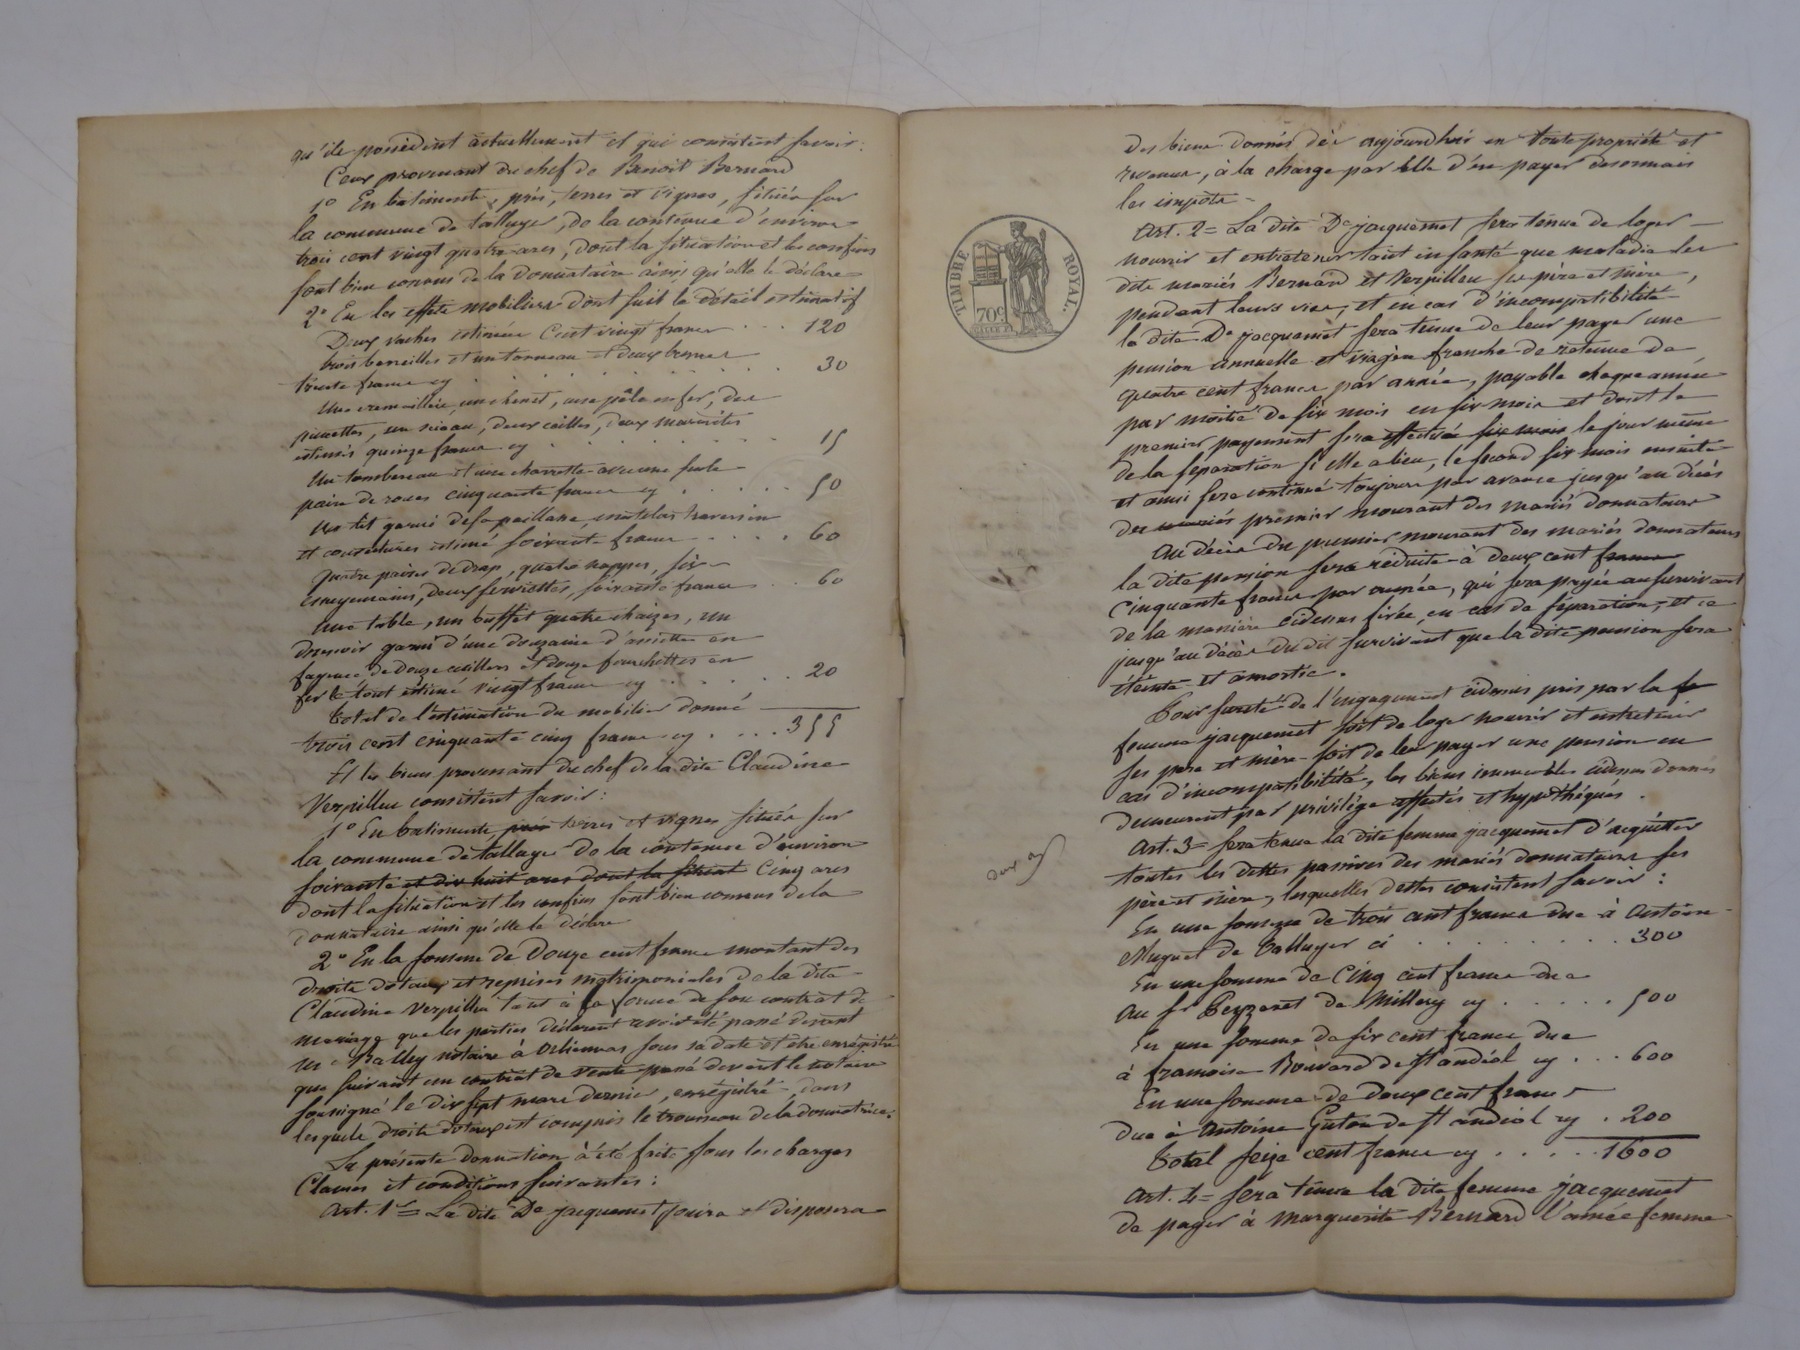 qu'ils possèdent actuellement et qui consistent savoir:
Ceux provenant du chef de Benoit Bernard
1° En batiments, prés, terres et vignes, situés sur
la commune de talluyer, de la contenue d'environ
trois cent vingt quatre ares, dont la situation et les confins
sont bien connus de la donnataire ainsi qu'elle le déclare
2° En les effets mobiliers dont suit le détail estimatif
Deux vaches estimées Cent vingt francs . . . 120
trois benneilles et un tonneau et deux bennes
trente francs cy . . . . . . . . 30
Une cremaillère, un chenet, une pêle en fer, des
pincettes, un sceau, deux cailles, deux marmites
estimés quinze francs cy . . . . . . 15
Un tombereau et une charrette avec une seule
paire de roues cinquante francs cy . . . . . 50
Un lit garni de sa paillasse, matelas traversin
et couvertures estimé soixante francs . . . . 60
quatre paires de drap, quatre nappes, six
essuyemains, deux serviettes, soixante francs . . 60
Une table, un buffet quatre chaizes, un
dressoir garni d'une douzaine d'assiettes en
fayence de douze cuillers et douze fourchettes en
fer le tout estimé vingt francs cy . . . . . 20
total de l'estimation du mobilier donné
trois cent cinquante cinq francs cy . . . . 355
Et les biens provenant du chef de la dite Claudine
Verpilleu consistent savoir:
1° En batiments, prés terres et vignes situés sur
la commune de talluyer de la contenue d'environ
soixante et dix huit ares dont la situat Cinq ares
dont la situation et les confins sont bien connus de la
donnataire ainsi qu'elle le déclare
2° En la somme de Douze cent francs montant des
droits dotaux et reprises matrimoniales de la dite
Claudine Verpilleu tant à la forme de son contrat de
mariage que les parties déclarent avoir été passé devant
Me Bally notaire à Orliennas sous sa date et etre enregistré
que suivant un contrat de vente passé devant le notaire
soussigné le dix sept mars dernier, enregistré, dans
lesquels droits dotaux est compris le trousseau de la donnatrice.
La présente donnation à été faite sous les charges
Clauses et conditions suivantes:
Art. 1er = La dite De jacquemet jouira et disposera
des biens donnés dès aujourdhui en toute propriété et
revenus, à la charge par elle d'en payer desormais
les impôts =
TIMBRE ROYAL.
70c
Art. 2 = La dite De jacquemet sera tenue de loger
nourrir et entretenir tant en santé que maladie les
dits mariés Bernard et Verpilleu ses père et mère,
pendant leurs vies, et en cas d'incompatibilité
la dite De jacquemet sera tenue de leur payer une
pension annuelle et viagère franche de retenue de
quatre cent francs par année, payable chaque année
par moitié de six mois en six mois et dont le
premier payement sera effectué six mois le jour même
de la séparation si elle a lieu, le second six mois ensuite
et ainsi sera continué toujours par avance jusqu'au décès
des mariés premier mourant des mariés donnateurs
Au décès du premier mourant des mariés donnateurs
la dite pension sera réduite à deux cent francs
Cinquante francs par année, qui sera payée au survivant
de la manière cidessus fixée, en cas de séparation, et ce
jusqu'au décès du dit survivant que la dite pension sera
éteinte et amortie.
Pour sureté de l'engagement cidessus pris par la fe
femme jacquemet soit de loger nourrir et entretenir
ses père et mère soit de leur payer une pension en
cas d'incompatibilité, les biens immeubles cidessus donnés
demeurent par privilège affectés et hypothéqués.
Art. 3 = sera tenue la dite femme jacquemet d'acquitter
toutes les dettes passives des mariés donnateurs ses
père et mère, lesquelles dettes consistent savoir:
En une somme de trois cent francs due à Antoine
Muguet de talluyer ci . . . . . . . . . 300
En une somme de Cinq cent francs due
Au sr Peyzaret de Millery cy . . . . . 500
En une somme de six cent francs due
à françoise Bouvard de st andéol cy . . . 600
En une somme de deux cent francs
due à Antoine Guton de st andéol cy . 200
total seize cent francs cy . . . . . 1600
Art. 4 = sera tenue la dite femme jacquemet
de payer à Marguerite Bernard l'ainée femme